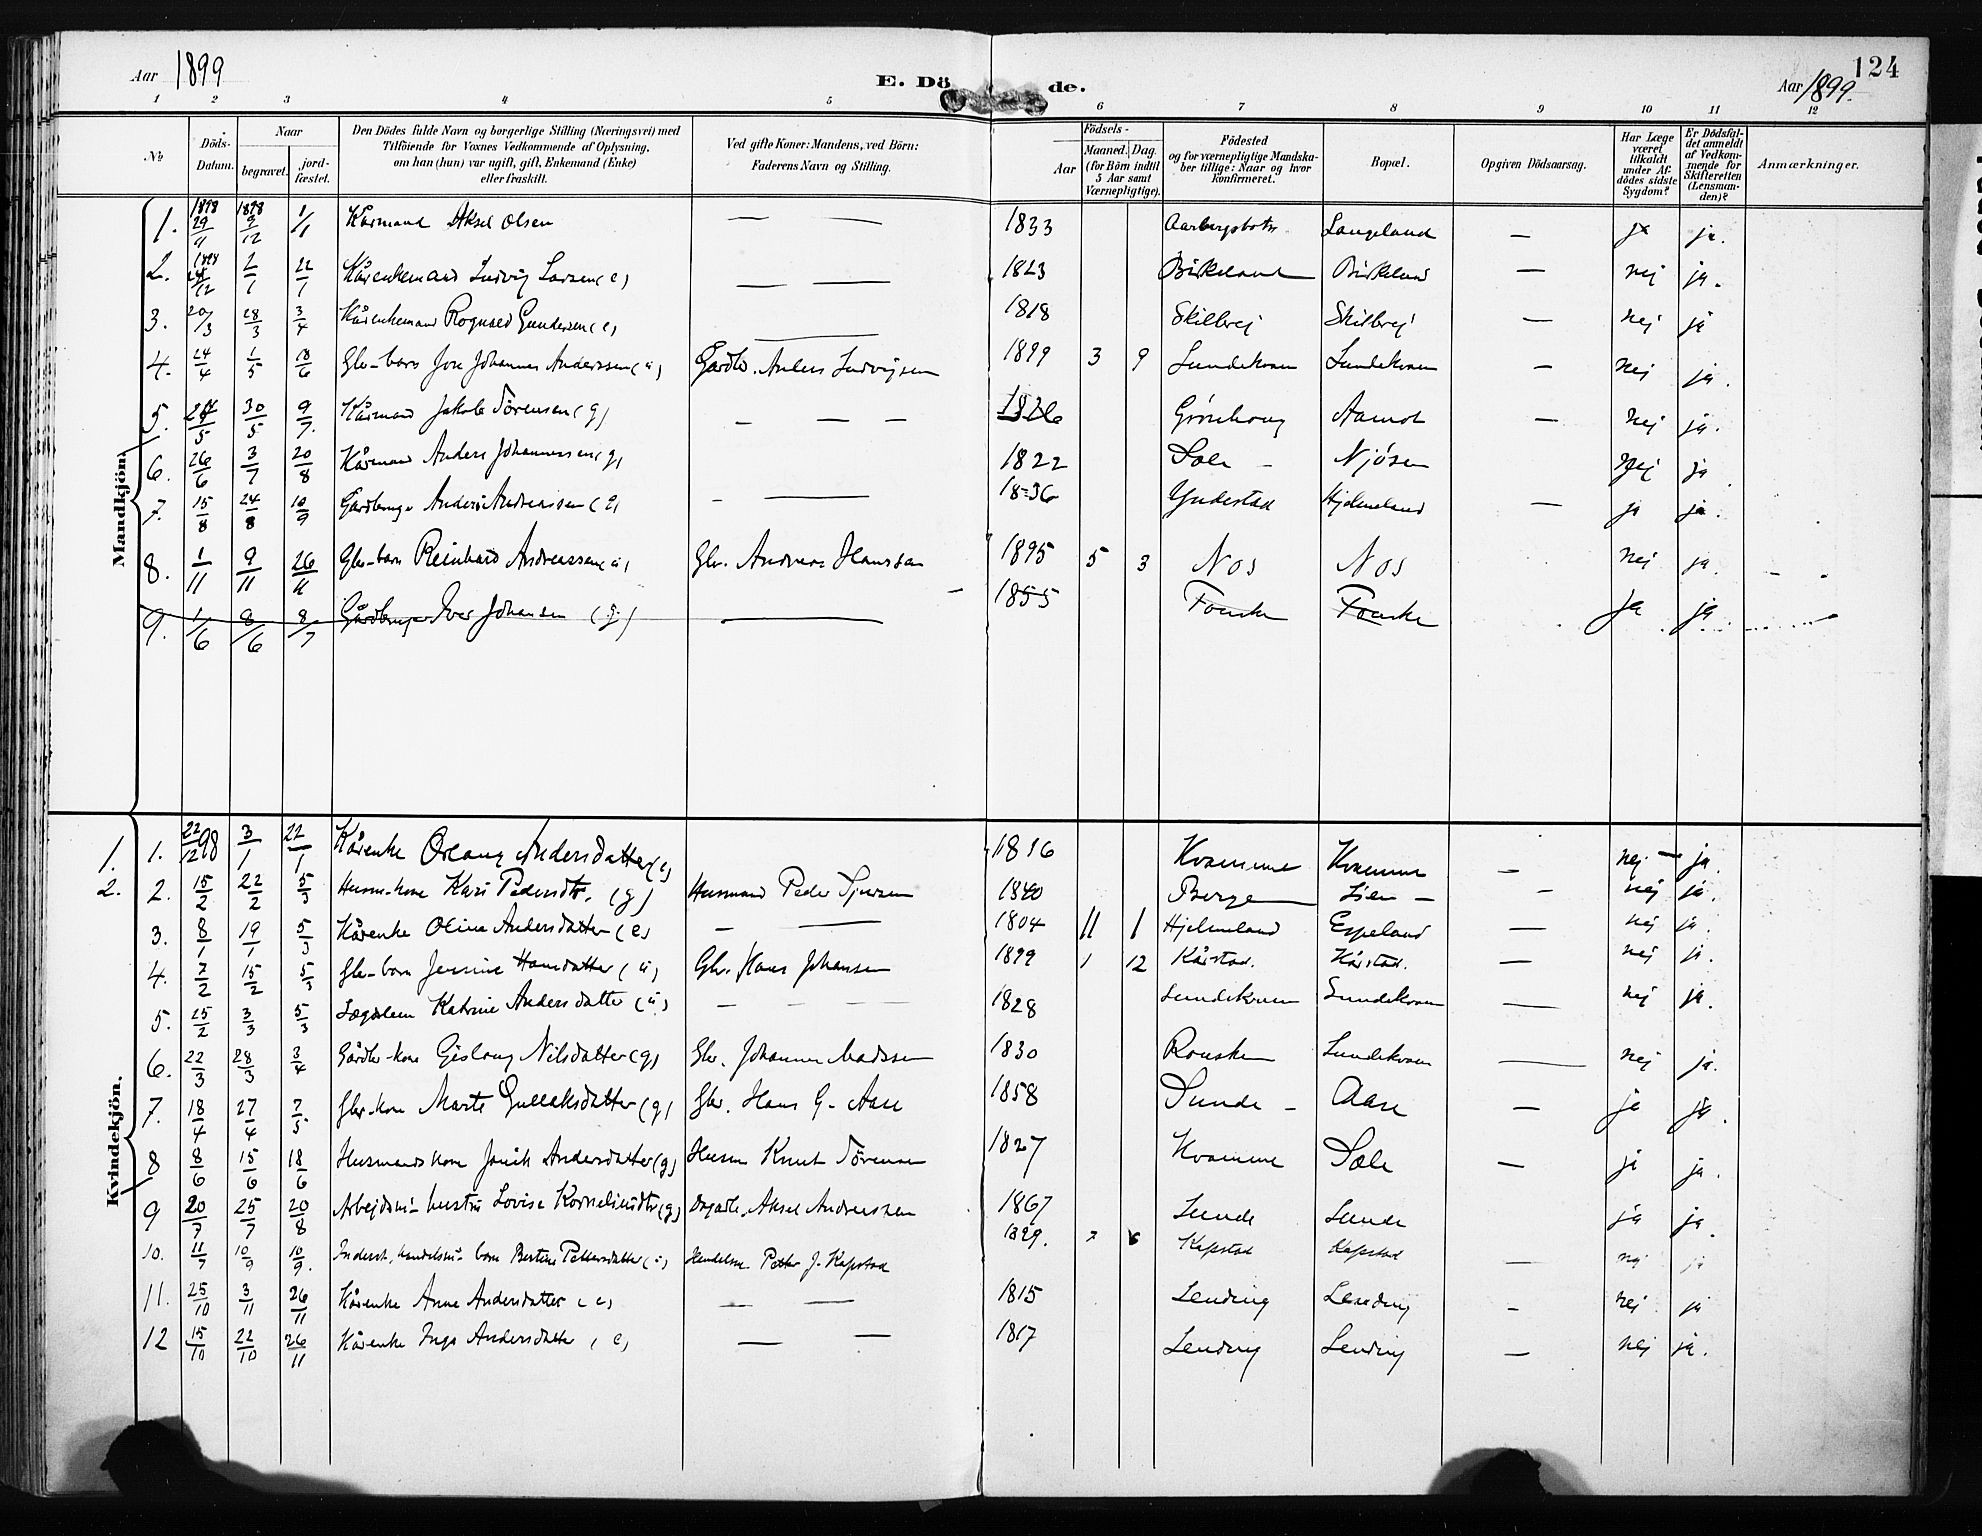 124
Aar 1899
E. Dö de.
Aar 1899.
1 2 3 4 5 6 7 8 9 10 11 12
№
Döds-Datum.
Naar
begravet.
jord-fæstet.
Den Dödes fulde Navn og borgerlige Stilling (Næringsvei) med
Tilföiende for Voxnes Vedkommende af Oplysning,
om han (hun) var ugift, gift, Enkemand (Enke)
eller fraskilt.
Ved gifte Koner: Mandens, ved Börn:
Faderens Navn og Stilling.
Födsels-
Aar
Maaned.
Dag.
(for Börn indtil
5 Aar samt
Værnepligtige).
Födested
og for værnepligtige Mandska-
ber tillige: Naar og hvor
konfirmeret.
Bopæl.
Opgiven Dödsaarsag.
Har Læge
været
tilkaldt
under Af-
dödes sidste
Sygdom?
Er Dödsfal-
det anmeldt
af Vedkom-
mende for
Skifteretten
(Lensman-
den)?
Anmærkninger.
Mandkjön.
1. 1898 29/11 1898 9/12 1/1 Kårmand Aksel Olsen — — 1833 Langeland — ja ja.
2. 1898 2/1 22/1 Kårenkemand Ludvig Larsen (e) — — 1823 Birkeland Birkeland — nej ja.
3. 20/3 28/3 3/4 Kårenkemand Rognald Gundersen (e) — 1818 Skilbrej Skilbrej — nej ja
4. 24/4 1/5 18/6 Gbr-barn Johannes Anderssen (u) Gårdbr. Anders Ludvigsen 1899 3 9 Sundekvam Sundekvam — nej ja.
5. 30/5 9/7. Kårmand Jakob Sörensen (g) — — — Grönhaug Aamot — nej ja.
6. 26/6 3/7 20/8 Kårmand Anders Johannessen (g) 1822 Sole — Njösen nej ja
7. 15/8 24/8 10/9 Gårdbruger Anders Andreassen (g) — — 1836 Yndestad Hjelmeland — ja ja.
8. 1/11 9/11 26/11 Gbr-barn Reinhard Andreassen (u) Gbr. Andreas Hanssen 1895 5 3 Nos Nos nej ja.
9. 1/6 8/6 8/7 Gårdbruger Iver Johansen (g) — 1855 ja ja
Kvindekjön.
1. 1. 22/12 98 3/1 22/1 Kårenke Andersdatter (e) 1816 Kvamme Kvamme — nej — ja.
2. 2. 15/2 22/2 5/3 Husm-kone Kari Pedersdtr. (g) Husmand Peder 1840 Berge Lien — — nej ja.
3. 8/1 19/1 5/3 Kårenke Oline Andersdatter (e) — — 1804 11 1 Hjelmeland Espeland — nej ja.
4. 7/2 15/2 5/3 Gbr-barn Jensine Hansdatter (u) Gbr. Hans Johansen 1899 1 12 Kårstad. Kårstad. — nej ja.
5. 25/2 3/3 5/3 Lægdslem Katrine Andersdatter (u) — — — 1828 Sundekvam Sundekvam — nej ja.
6. 22/3 28/3 3/4 Gårdbr-kone Gjislaug Nilsdatter (g) Gbr. Johannes Madssen 1830 Sundekvam — nej ja.
7. 18/4 27/4 7/5 Gbr-kone Marte Gullaksdatter (g) Gbr. Hans G. Aase 1858 Sunde — Aase — ja ja.
8 8/6 15/6 18/6 Husmands kone Andersdatter (g) Husm Knut Sörensen 1827 Kvamme Sole — ja ja.
9 20/7 25/7 20/8 Arbejdsm. hustru Lovise Kornelius­dtr (g) Aksel Andreassen 1867 Sunde Sunde ja ja.
10. 11/7 10/9 10/9. Handelsm. barn Bertine Pettersdatter (u) Handelsm Petter J. Kapstad 1899. 7 6 Kapstad Kapstad — nej ja
11. 25/10 3/11 26/11 Kårenke Anne Andersdatter (e) — — 1815 — nej ja
12 15/10 22/10 26/11 Kårenke Inga Andersdatter (e) — — 1817 — nej ja.